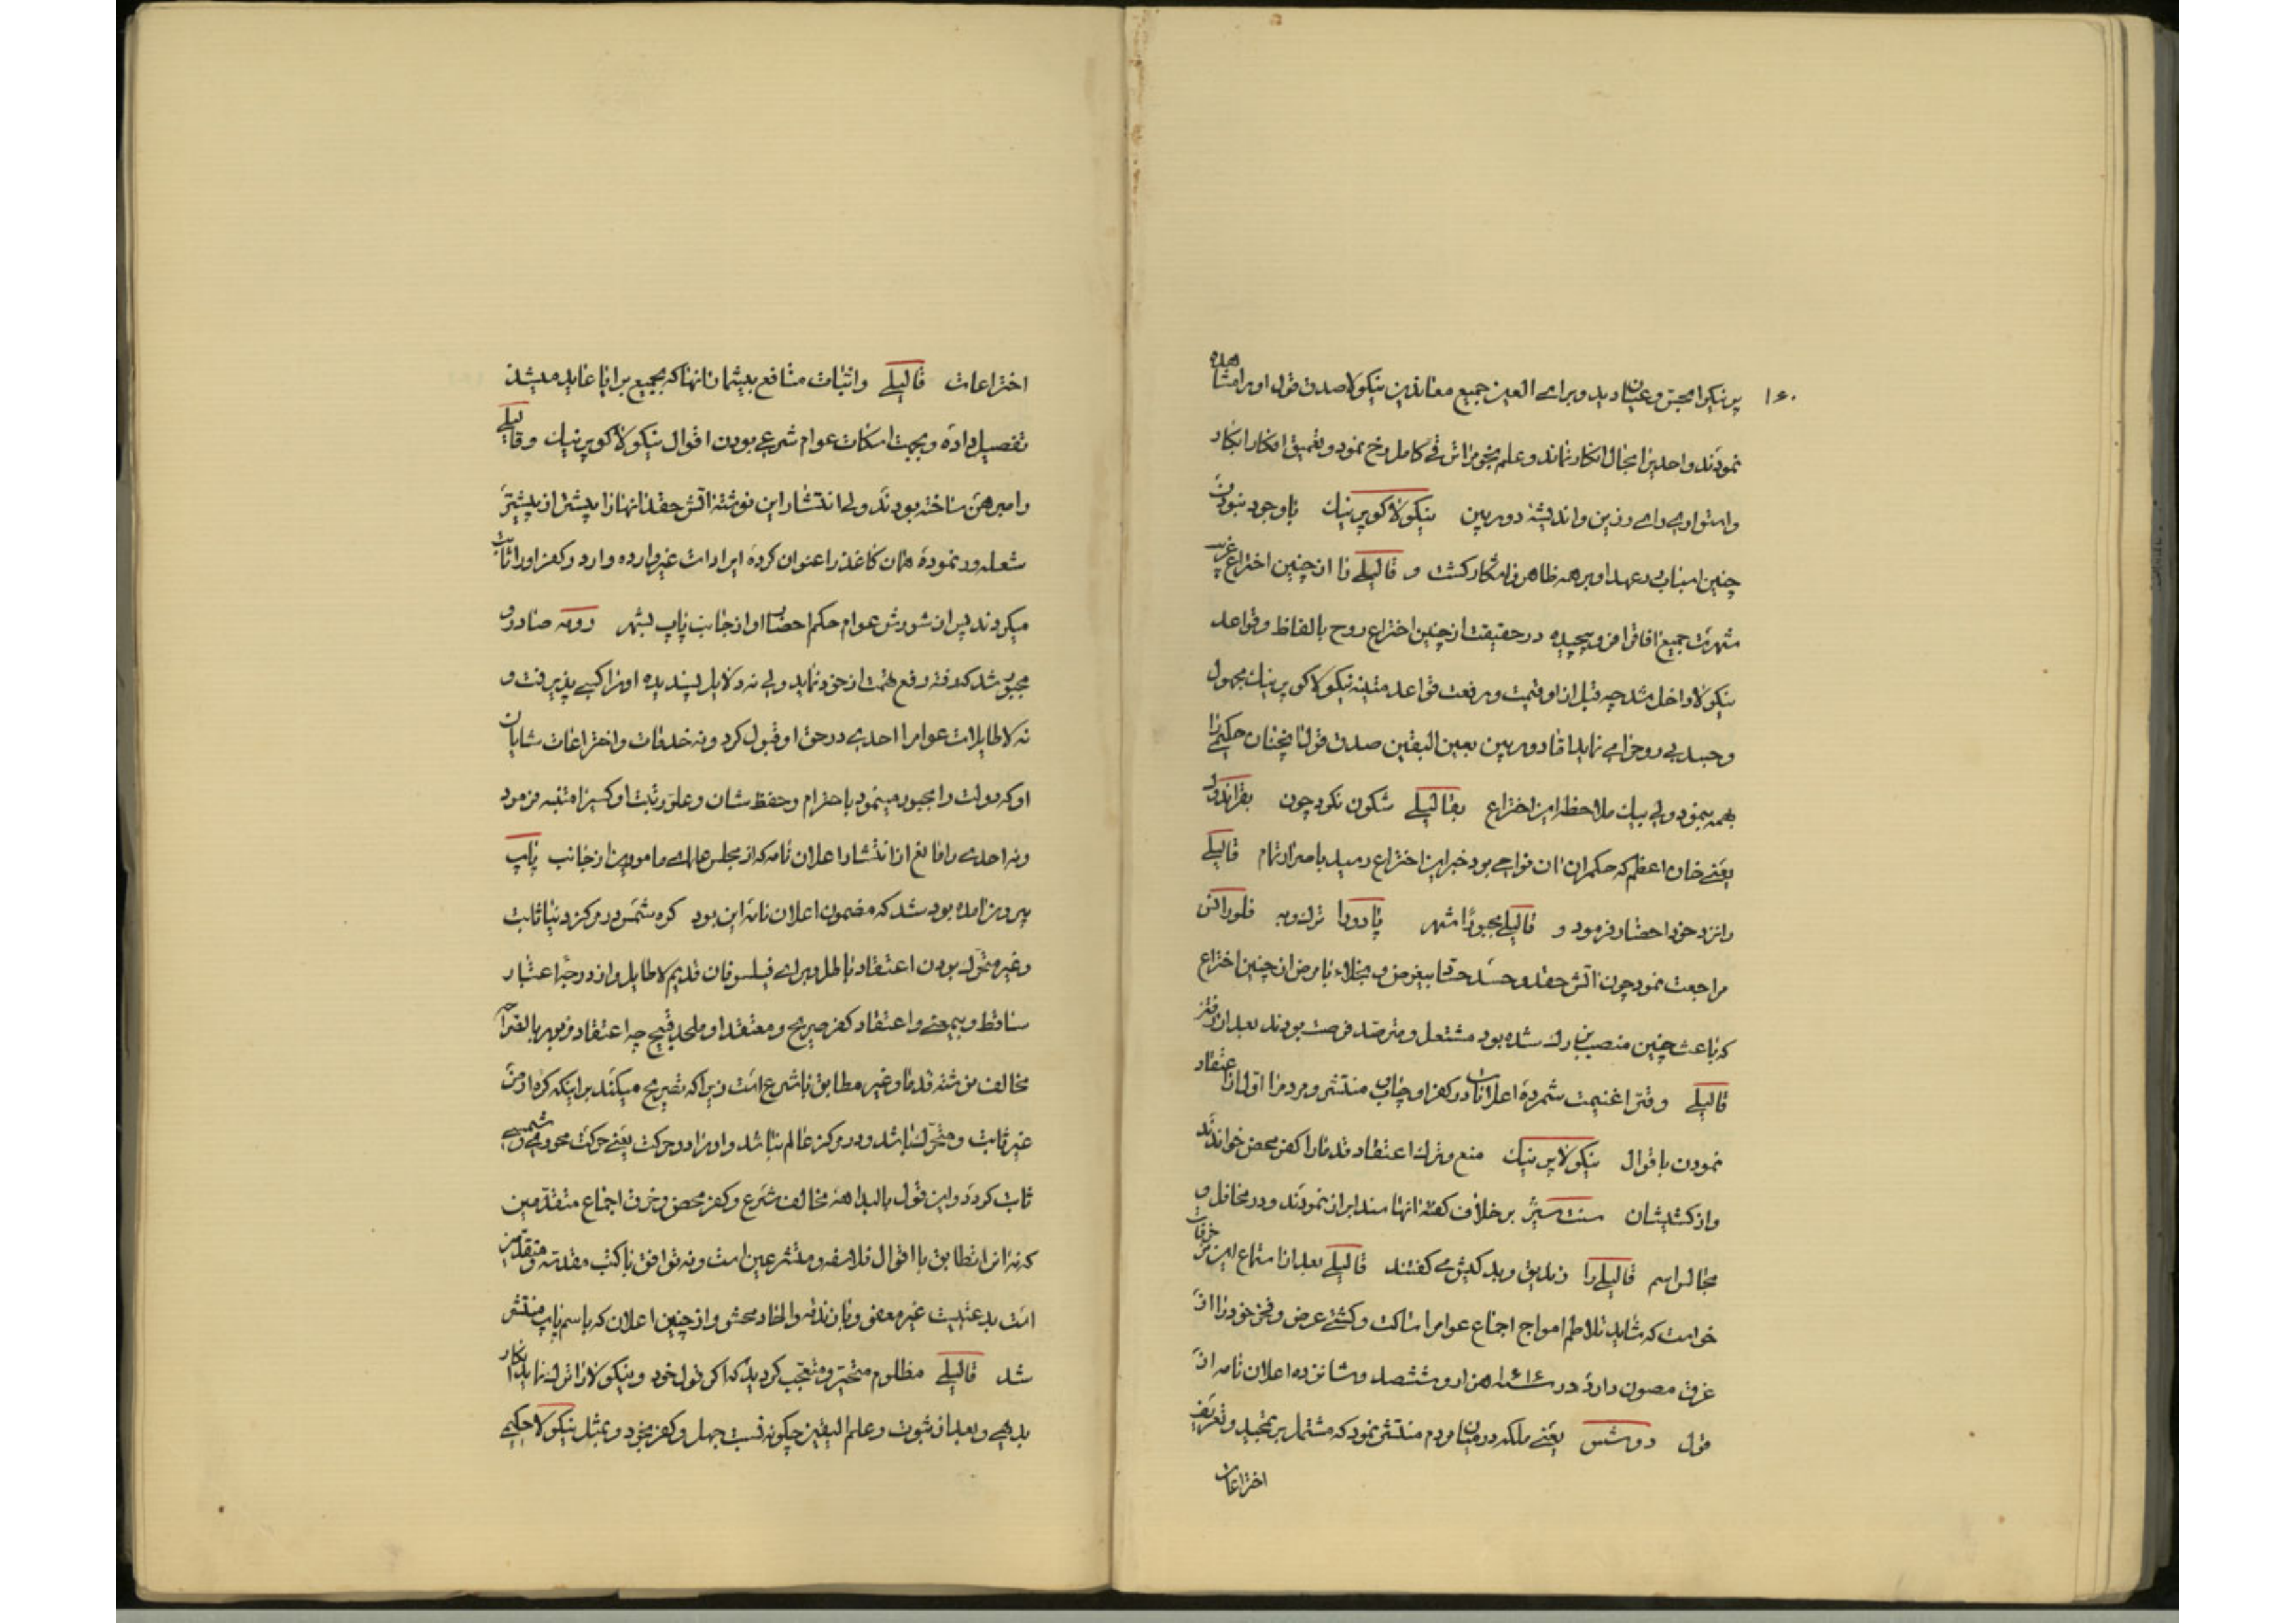 ۱۶۰
پرنیکو امجتی و عیان دید و برای العین جمیع معاندین نیکولا صدق قول او را مشاهده
نمودند و احدیرا مجال انکار نماند و علم نجوم را ترقی کامل رخ نمود و تعمیق افکار ابکار
و استواری رای رزین و اندیشه دوربین نیکولا کوپرنیك با وجود نبودن
چنین اسباب در عهد او بر همه ظاهر و آشکار کشت و قالیلے را از چنین اختراع غریب
شهرت جمیع افاق را فرو پیچیده در حقیقت از چنین اختراع روح بالفاظ و قواعد
نیکولا داخل شد چه قبل از او قیمت و رفعت قواعد متینه نیکولا کوپرنیك مجهول
و جسد بی روح رامی نماید اما دوربین بعین الیقین صدق قول انچنان حکیمرا
بهمه نمود ولی بیك ملاحظه این اختراع بقالیلے شکون نکرد چون بقراندوك
یعنے خان اعظم که حکمران ان نواحی بود خبر این اختراع رسید باصرار تمام قالیلے
را نزد خود احضار فرمود و قالیلے مجبورا شهر پادورا ترك و به فلورانس
مراجعت نمود چون آتش حقد و حسد
که باعث چنین منصب بزرك شده بود مشتعل و مترصد فرصت بودند بعد از رفتن
قالیلے وقت را غنیمت شمرده اعلانات در کفر او چاپ و منتشر و مردم را اول از اعتقاد
نمودن باقوال نیکولا پرنیك منع و ترك اعتقاد قدما را کفر محض خواندند
و از کشیشان سنت برخلاف کفته انها سند ابراز نمودند و در محافل و
مجالس اسم قالیلے را زندیق و بد کیش می کفتند قالیلے بعد از استماع این مزخرفات
خواست که شاید تلاطم امواج اجتماع عوام را ساکت و کشتی عرض و فخر خود را از
غرق مصون دارد در سنه ۱۶۱۶ هزار و ششصد و شانزده اعلان نامه از
قول دوشس یعنے ملکه در میان مردم منتشر نمود که مشتمل بر تمجید و تعریف
اختراعات
اختراعات قالیلے و اثبات منافع بیشمار انها که بجمیع برایا عاید میشد
تفصیل داده و بجهت اسکات عوام شرعی بودن اقوال نیکولا کوپرنیك و قالیلے
را مبرهن ساخته بودند ولی انتشار این نوشته آتش حقد انها را بیشتر از پیشتر
شعله ور نموده همان کاغذ را عنوان کرده ایرادات غیر وارده وارد و کفر او را اثبات
میکردند پس از شورش عوام حکم احضار او از جانب پاپ بشهر رومه صادر و
مجبور شد که رفته رفع تهمت از خود نماید ولی نه دلایل پسندیده او را کسی پذیرفت و
نه لاطایلات عوام را احدی در حق او قبول کرد و نه خدمات و اختراعات شایان
او که دولت را مجبور مینمود باحترام و حفظ شان و علو رتبت او کسیرا متنبه فرمود
و نه احدی را مانع از انتشار اعلان نامه که از مجلس علمای مامورین از جانب پاپ
بیرون آمده بود شد که مضمون اعلان نامه این بود کره شمس در مرکز دنیا ثابت
و غیر متحرك بودن اعتقاد باطل و برای فیلسوفان قدیم لاطایل و از درجه اعتبار
ساقط و بیمعنی و اعتقاد کفر صریح و معتقد او ملحد قبیح چه اعتقاد مزبور بالصراحه
مخالف نوشته قدما و غیر مطابق با شرع است زیرا که تصریح میکند بر اینکه کره ارض
غیر ثابت و متحرك باشد و در مرکز عالم نباشد و او را دو حرکت یعنی حرکت محوری و شمسی
ثابت کرده و این قول بالبداهه مخالف شرع و کفر محض و خرق اجماع متقدمین
که نه آنرا تطابق با اقوال فلاسفه و متشرعین است و نه توافق با کتب مقدسه و متقدمین
است بدعتیست غیر معفو و زندقه والحاد محض و از چنین اعلان که باسم پاپ منتشر
شد قالیلے مظلوم متحیر و متعجب کردید که اکر قول خود و نیکولا را ترك نماید انکار
بدیهی و بعد از ثبوت و علم الیقین چکونه نسبت جهل و کفر بخود و بمثل نیکولا حکیمے